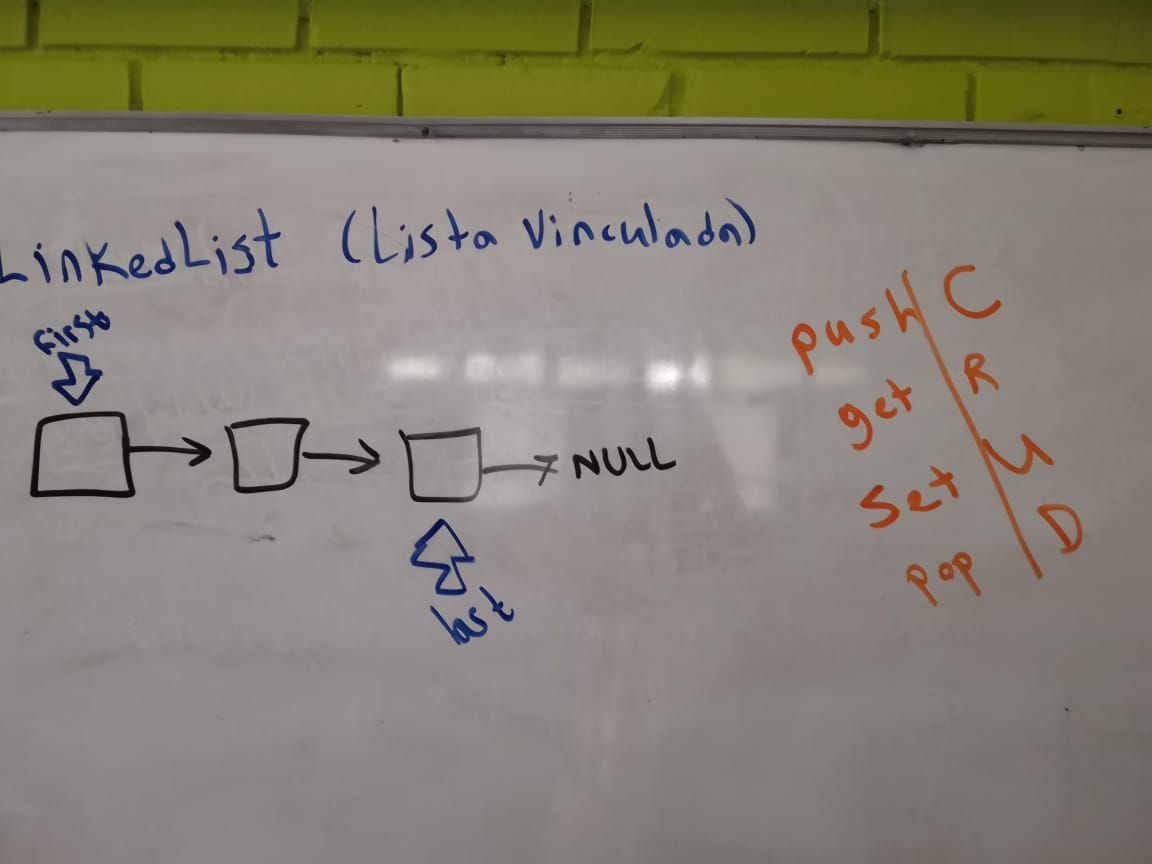 LinkedList (Lista Vinculada)
First
NULL
last
push C
get R
Set U
pop D